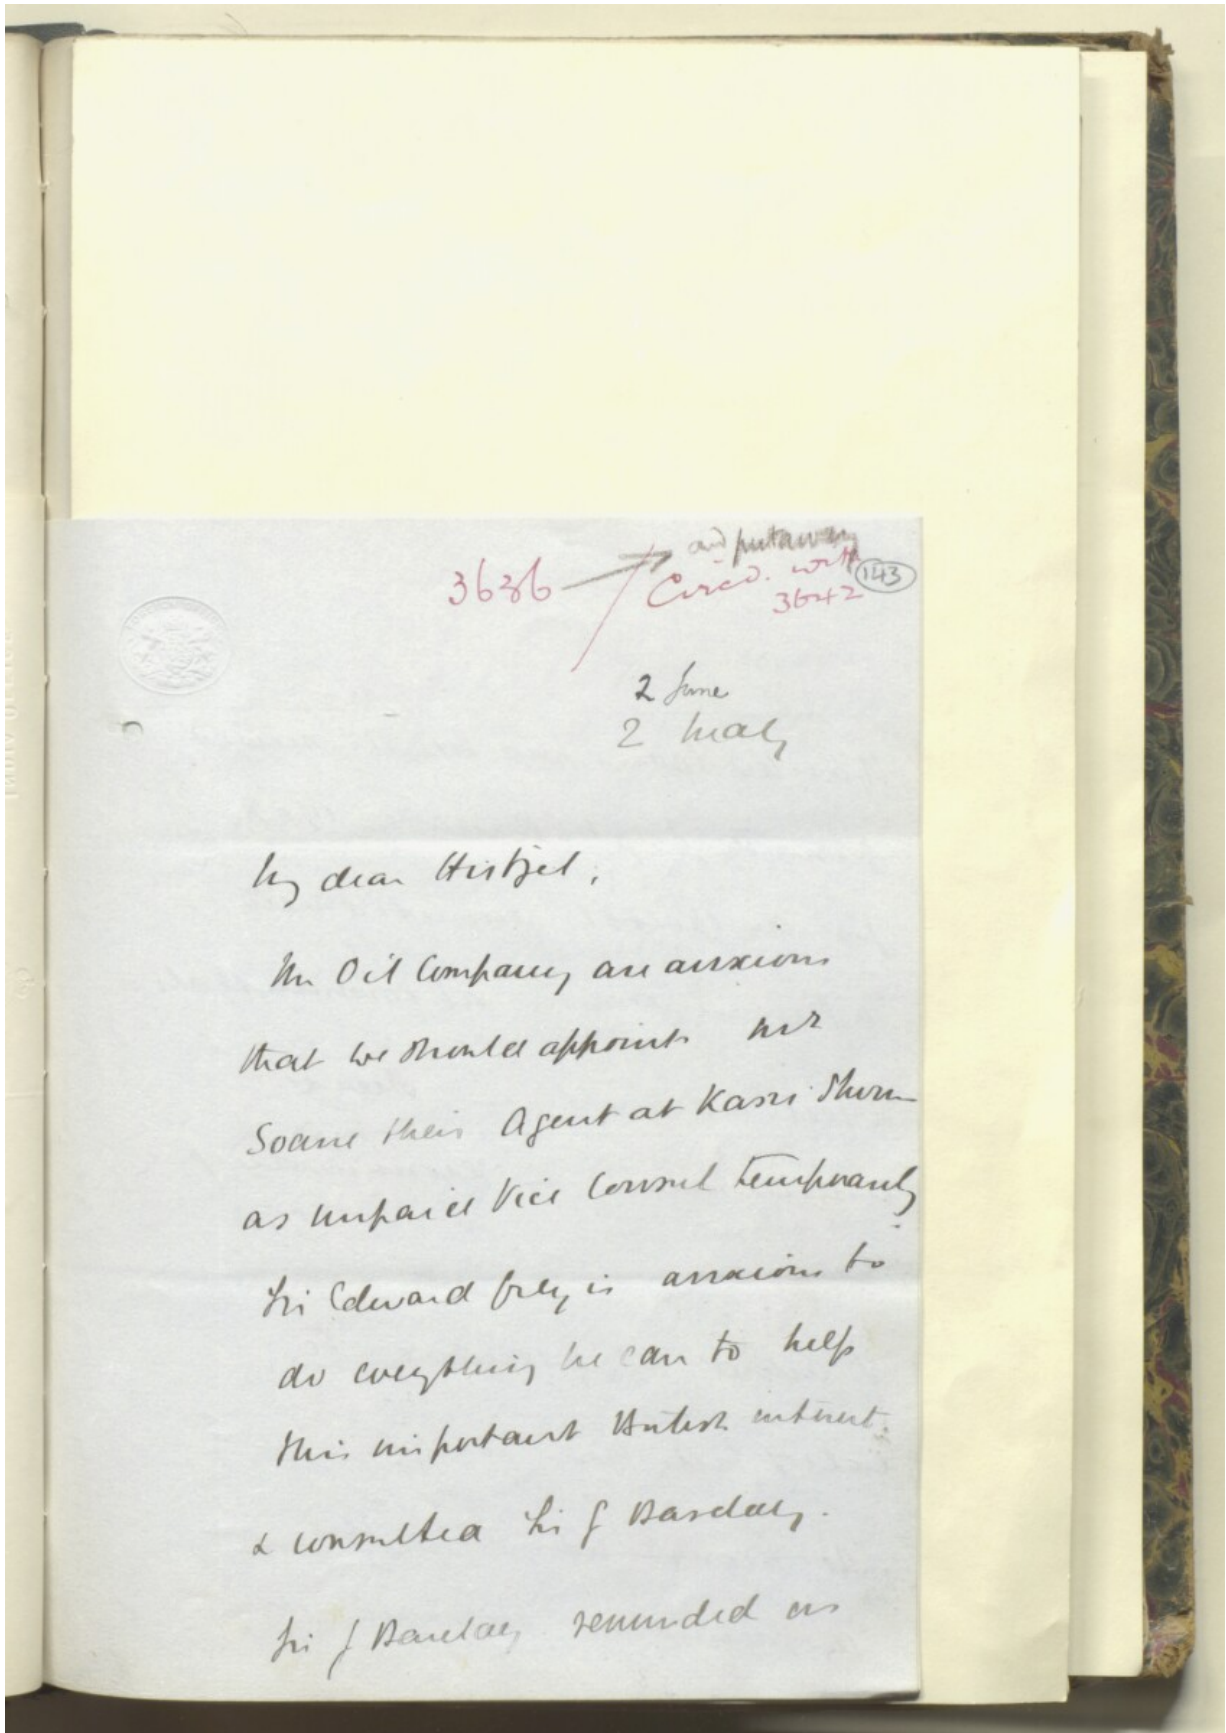 3636
and put away
Circd. with
3642
143
2 June
2 May
My dear Hirtzel,
The Oil Company are anxious
that we should appoint Mr
Soane their Agent at Kasri Shirin
as unpaid Vice Consul temporarily.
Sir Edward Grey is anxious to
do everything he can to help
this important British interest
& consulted Sir G Barclay.
Sir G Barclay reminded us